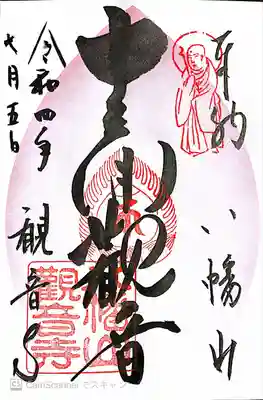 奉納
八幡山
十一面觀音
令和四年
七月五日
観音寺
觀音寺
CS CamScanner でスキャン